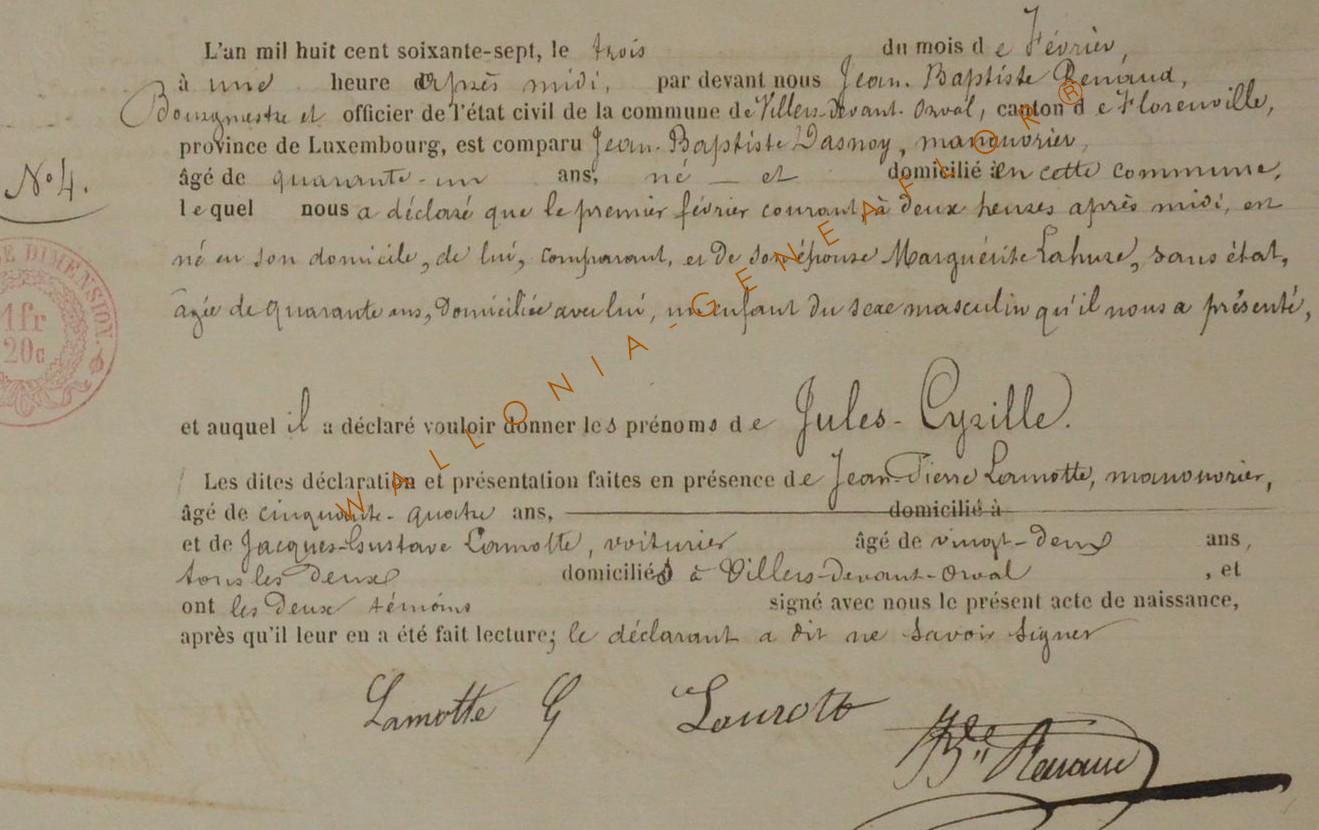 L'an mil huit cent soixante-sept, le trois du mois de Février,
à une heure après midi, par devant nous Jean-Baptiste Renaud,
Bourgmestre et officier de l'état civil de la commune de Villers-Devant-Orval, canton de Florenville,
province de Luxembourg, est comparu Jean-Baptiste Dasnoy, manouvrier,
âgé de quarante-un ans, né — et domicilié en cette commune,
N° 4.
lequel nous a déclaré que le premier février courant à deux heures après midi, est
né en son domicile, de lui, comparant, et de son épouse Marguérite Lahure, sans état,
agée de quarante ans, domiciliée avec lui, un enfant du sexe masculin qu'il nous a présenté,
DIMENSION.
1fr
20c
et auquel il a déclaré vouloir donner les prénoms de Jules-Cyrille.
Les dites déclaration et présentation faites en présence de Jean-Pierre Lamotte, manouvrier,
âgé de cinquante-quatre ans, domicilié à
et de Jacques-Gustave Lamotte, voiturier âgé de vingt-deux ans,
tous les deux domiciliés à Villers-Devant-Orval, et
ont les deux témoins signé avec nous le présent acte de naissance,
après qu'il leur en a été fait lecture; le déclarant a dit ne savoir signer
Lamotte G
Renaud
WALLONIA-GENEAFLOR®